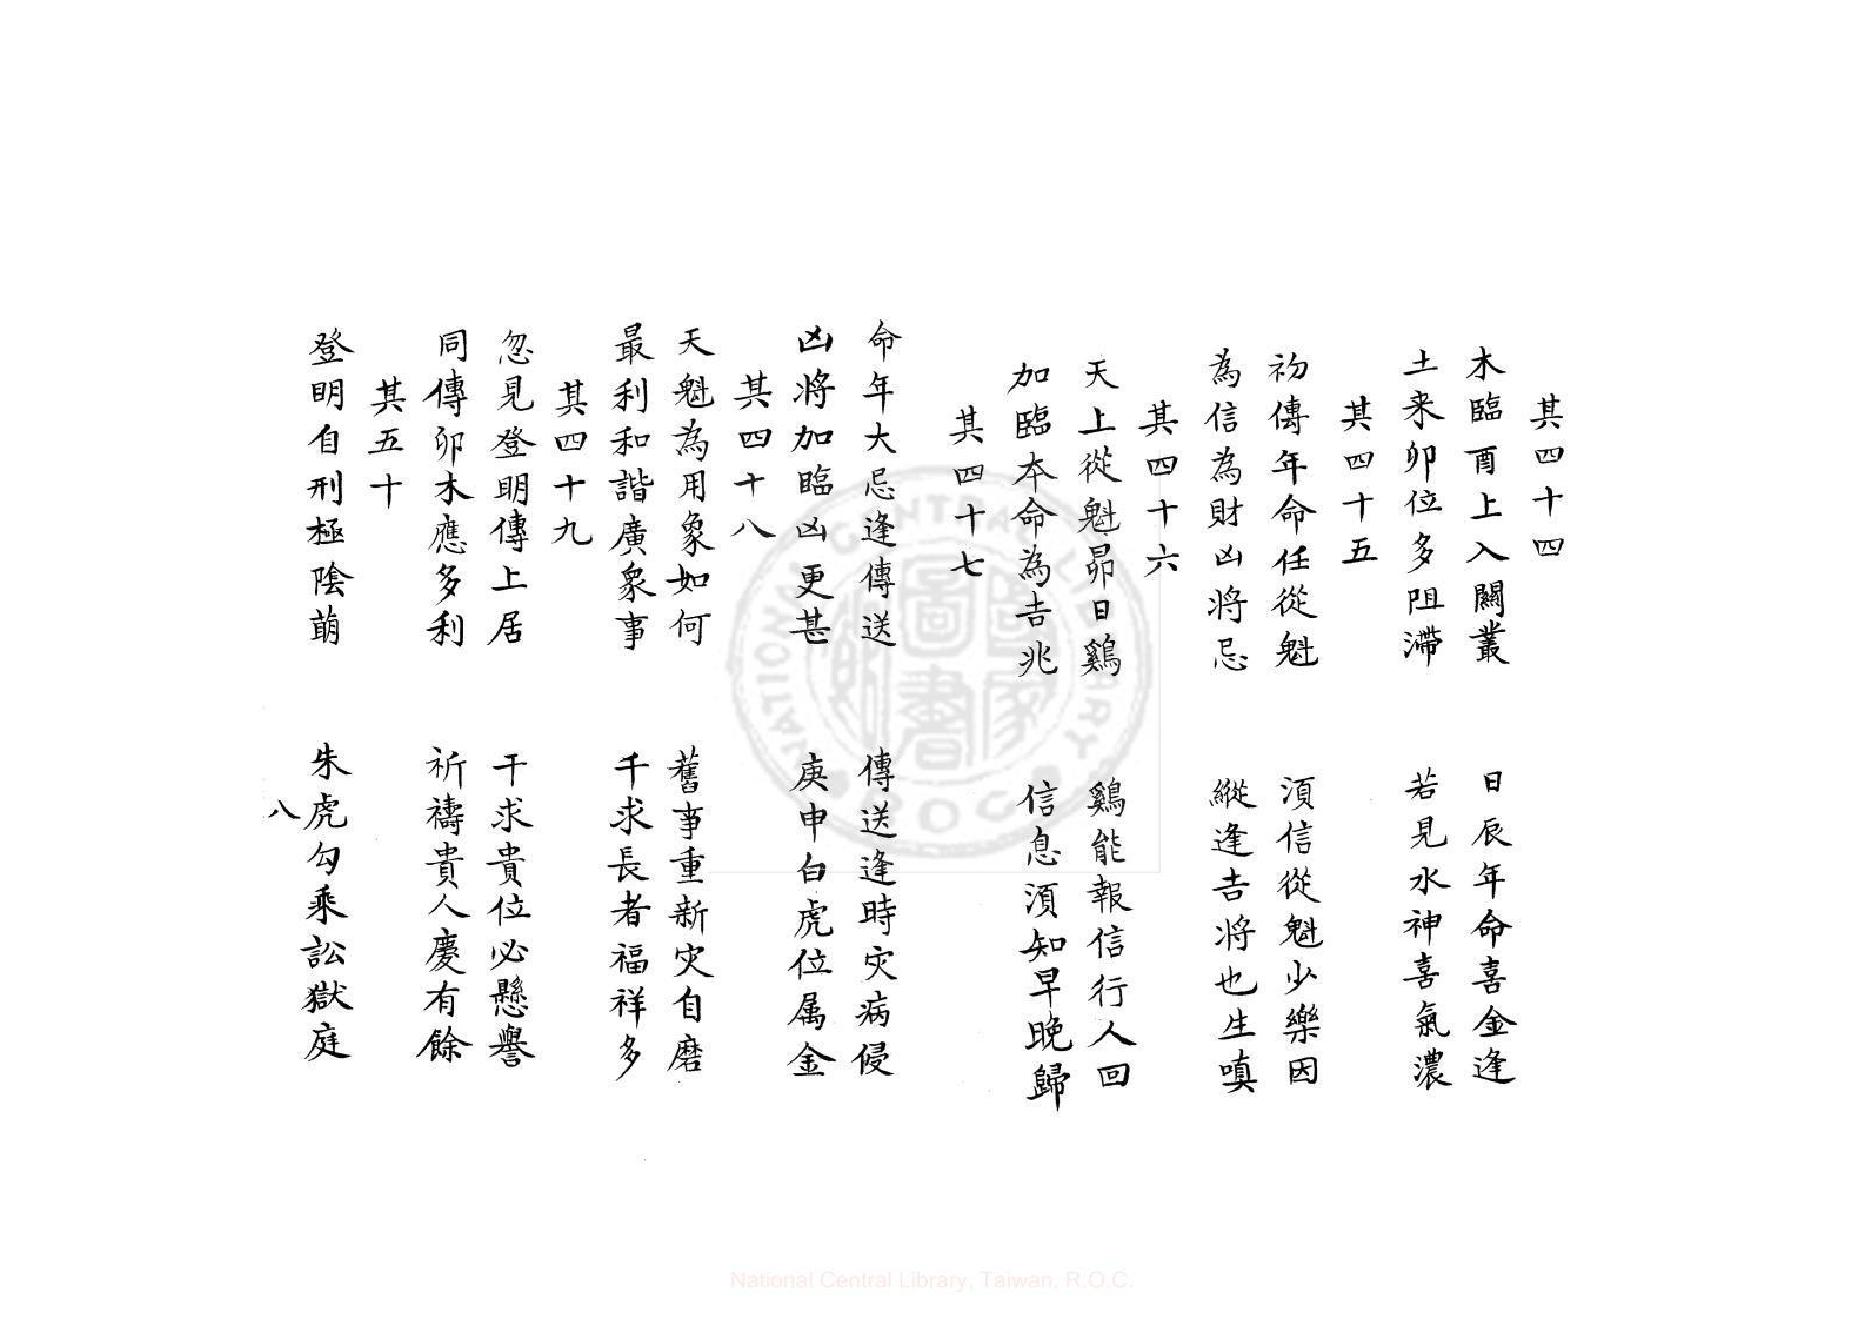 其四十四
木臨酉上入關叢　日辰年命喜金逢
土来卯位多阻滯　若見水神喜氣濃
其四十五
初傳年命任從魁　須信從魁少樂因
為信為財凶將忌　縱逢吉將也生嗔
其四十六
天上從魁昴日鷄　鷄能報信行人回
加臨本命為吉兆　信息須知早晚歸
其四十七
命年大忌逢傳送　傳送逢時灾病侵
凶將加臨凶更甚　庚申白虎位属金
其四十八
天魁為用象如何　舊事重新灾自磨
最利和諧廣衆事　千求長者福祥多
其四十九
忽見登明傳上居　干求貴位必懸譽
同傳卯木應多利　祈禱貴人慶有餘
其五十
登明自刑極陰萌　朱虎勾乘訟獄庭
八
NATIONAL CENTRAL LIBRARY R.O.C.
國家圖書館
National Central Library, Taiwan, R.O.C.